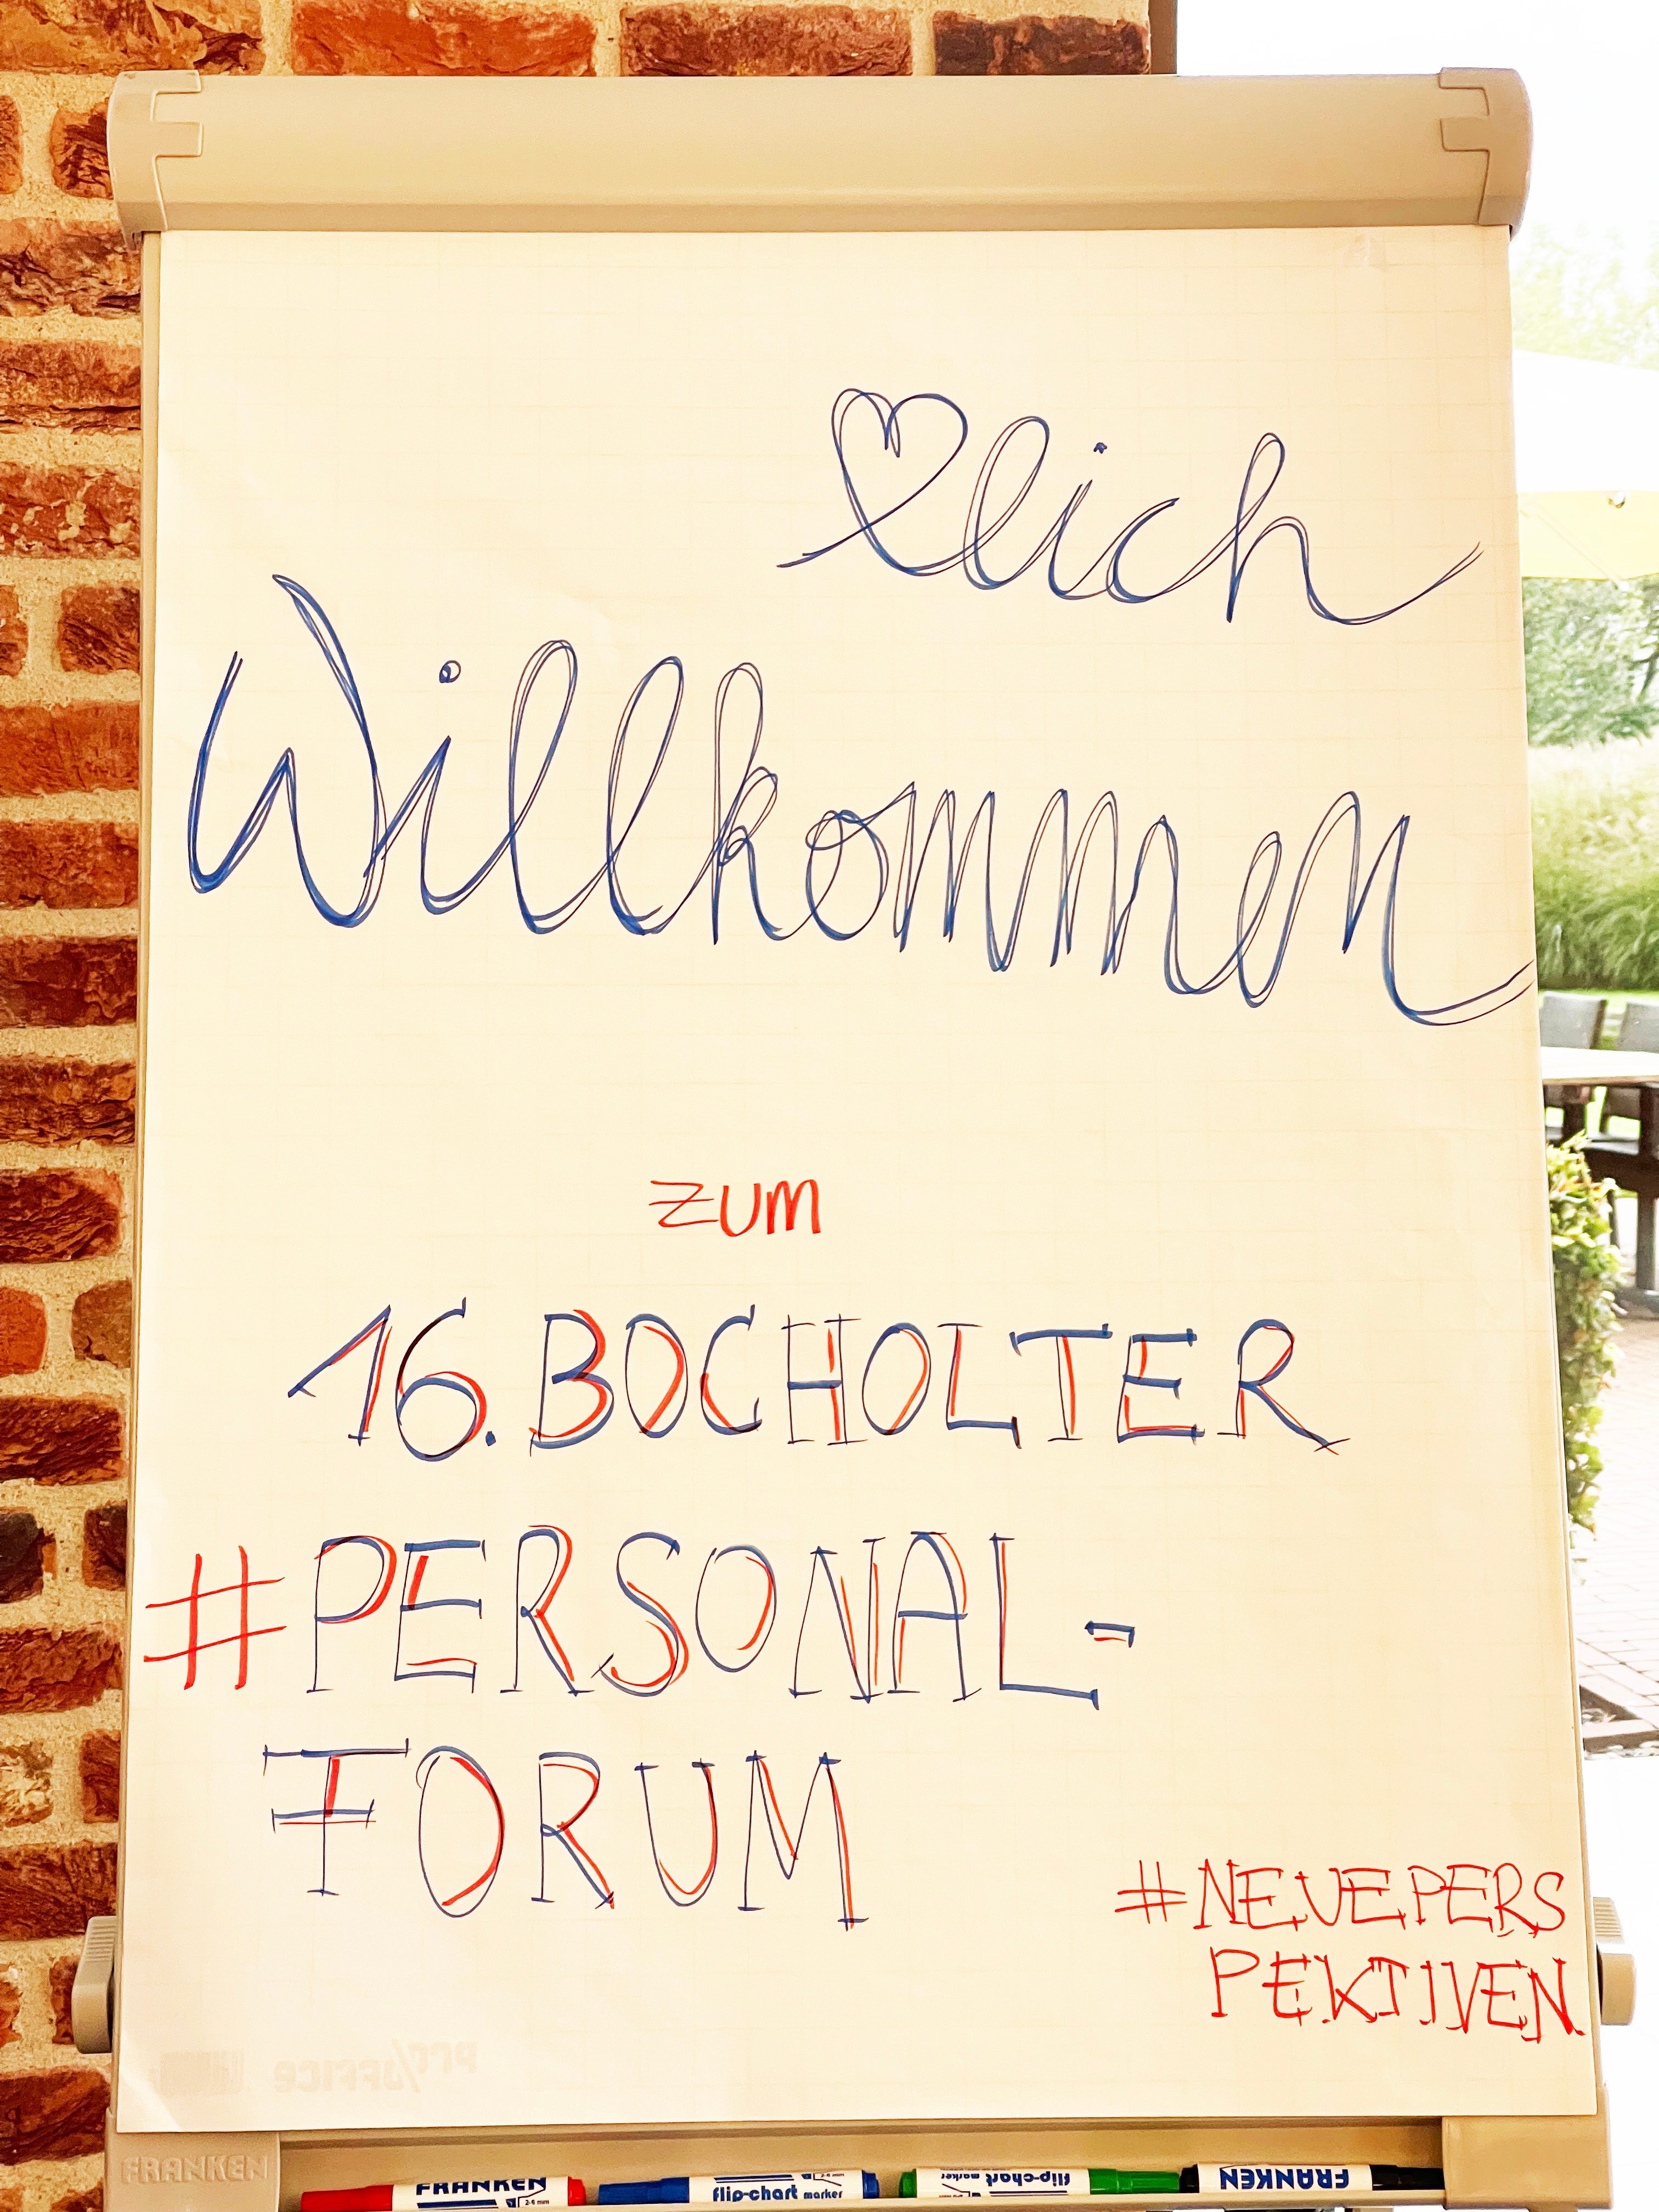 ♡lich
Willkommen
zum
16. BOCHOLTER
#PERSONAL-
FORUM
#NEUEPERS
PEKTIVEN
PRO/OFFICE
FRANKEN
FRANKEN
flip-chart marker
flip-chart marker
FRANKEN